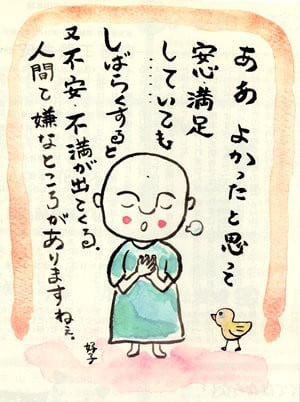 ああ よかったと思って
安心・満足
していても
……
しばらくすると
又不安・不満が出てくる。
人間て嫌なところが
ありますねぇ。
好子